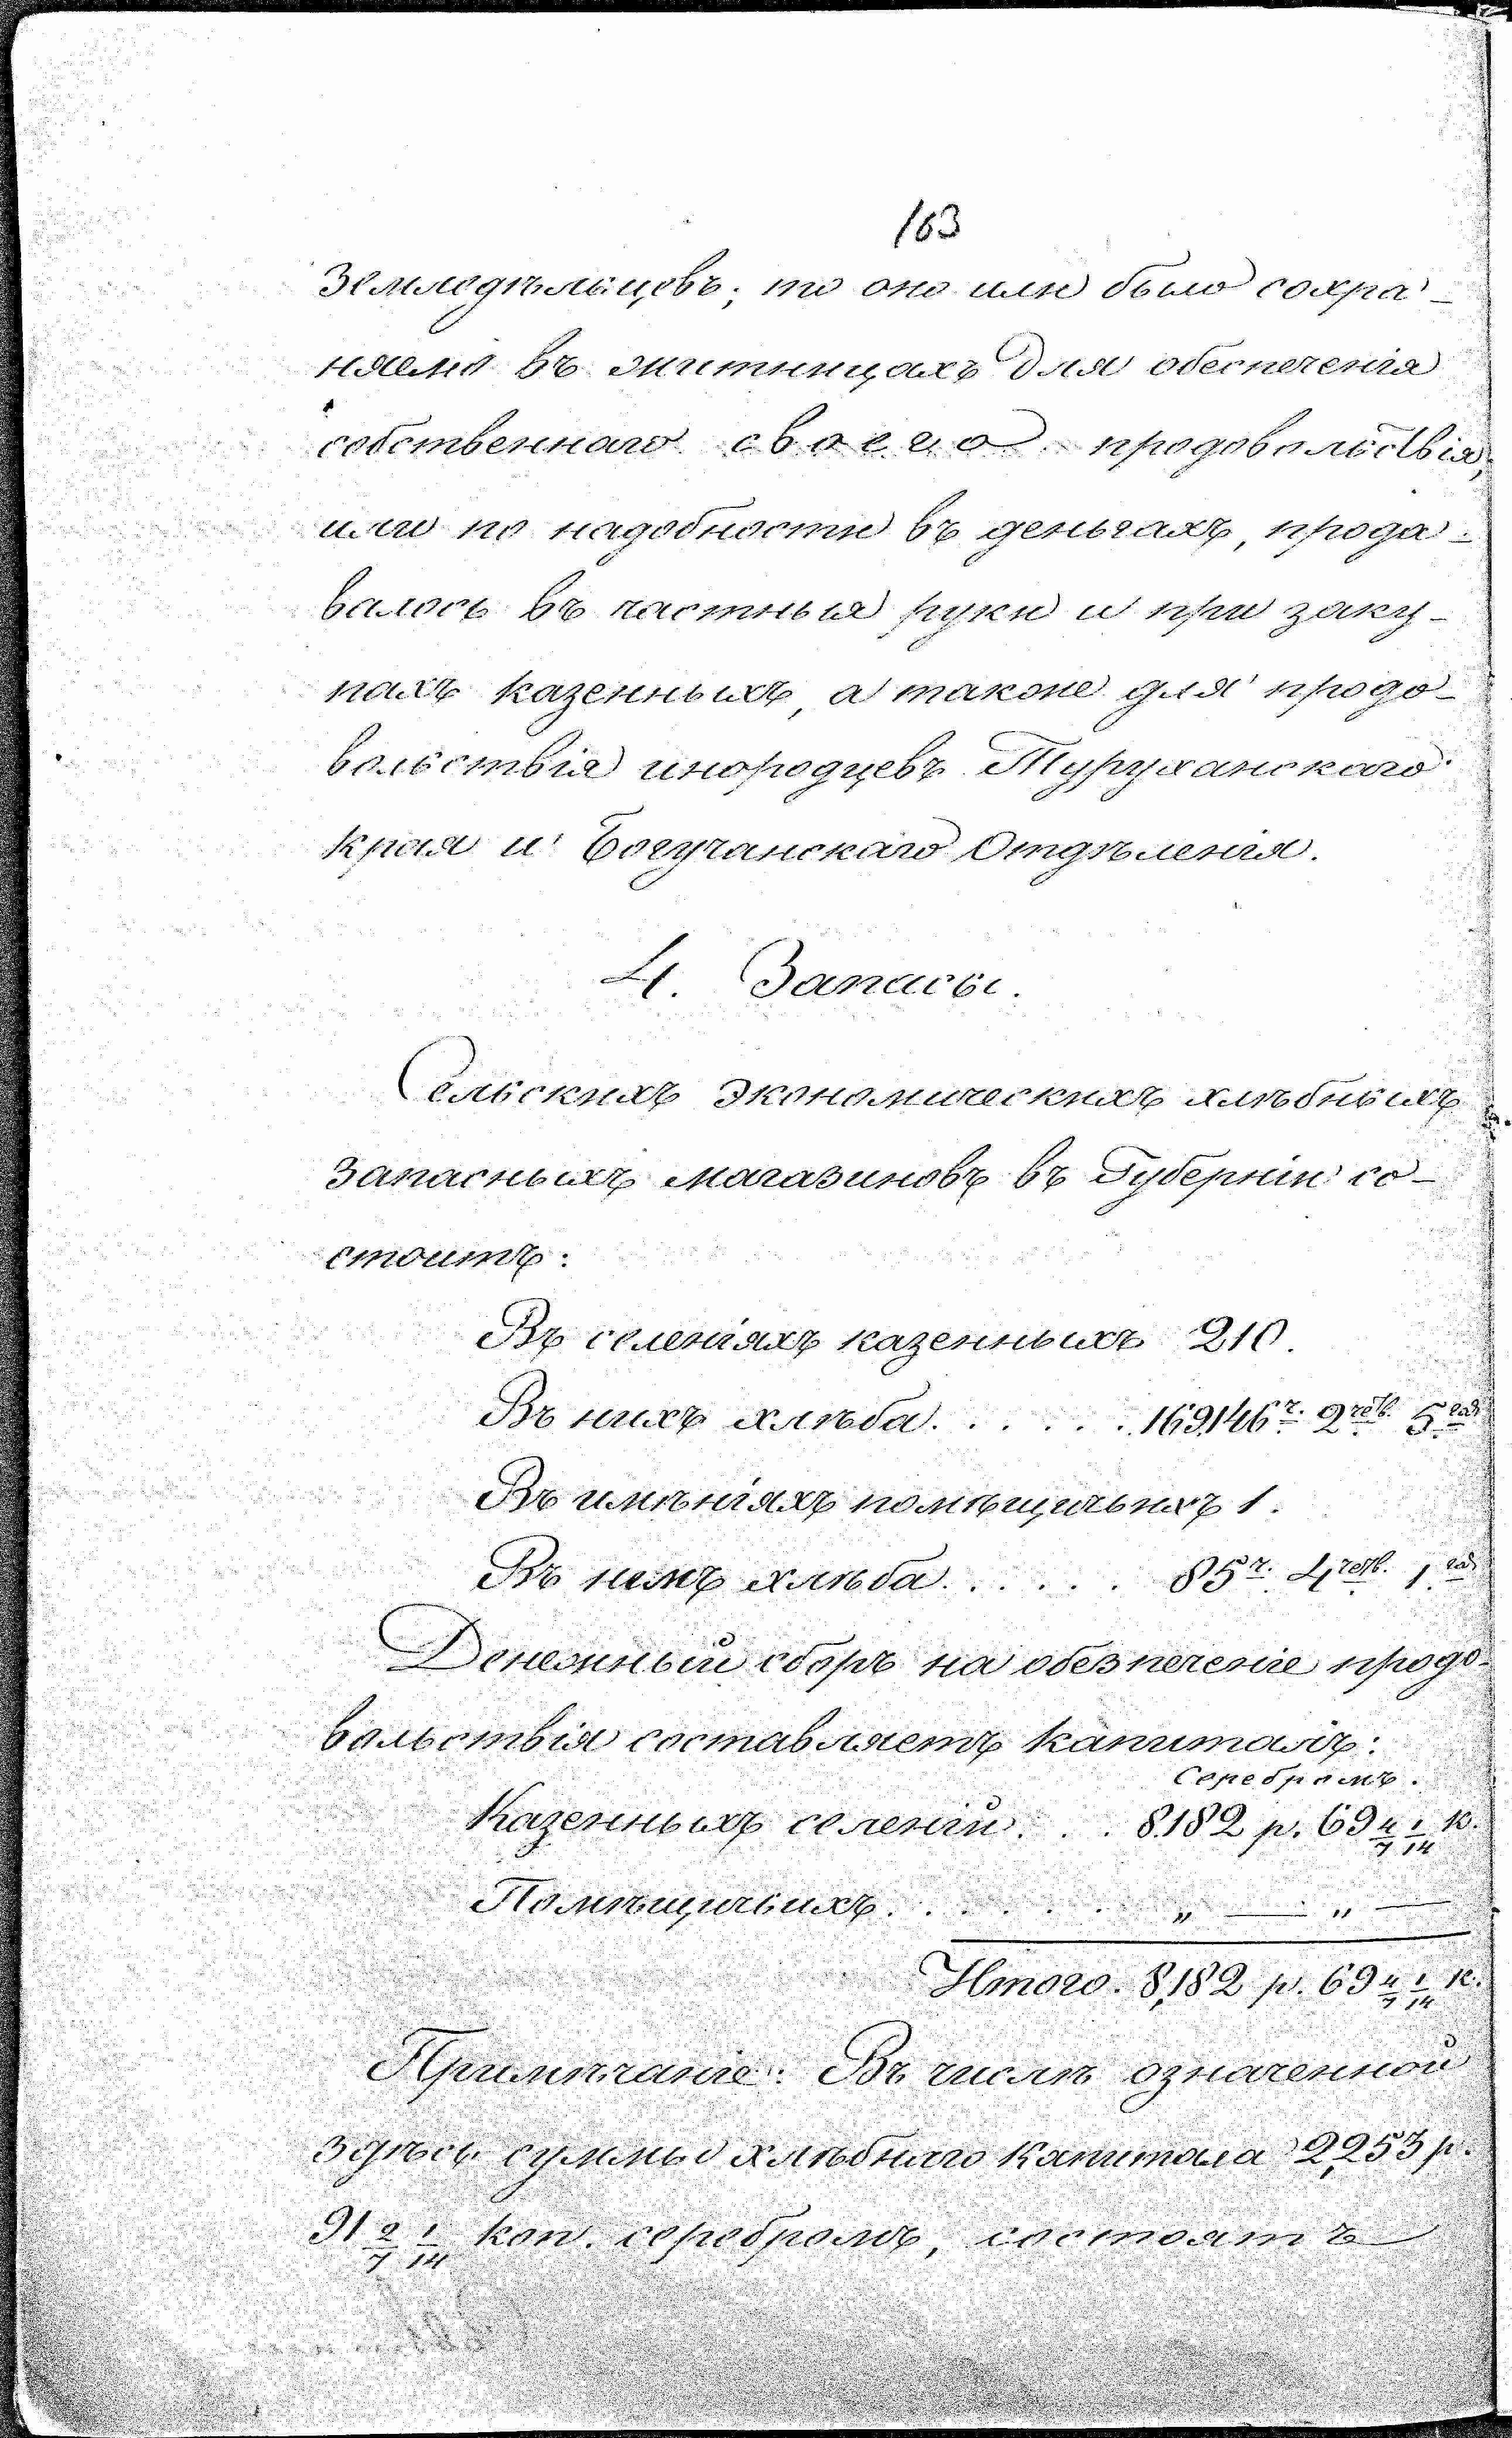 163
земледѣльцевъ; то оно или было сохра-
няемо въ житницахъ для обеспеченія
собственнаго своего продовольствія,
или по надобности въ деньгахъ, прода-
валось въ частныя руки и при заку-
пахъ казенныхъ, а также для продо-
вольствія инородцевъ Туруханскаго
края и Богучанскаго Отдѣленія.
4. Запасы.
Сельскихъ экономическихъ хлѣбныхъ
запасныхъ магазиновъ въ Губерніи со-
стоитъ:
Въ селеніяхъ казенныхъ 210.
Въ нихъ хлѣба. . . . . . 169,146 ч. 2 чет. 5 гар.
Въ имѣніяхъ помѣщичьихъ 1.
Въ немъ хлѣба. . . . . . 85 ч. 4 четв. 1 гар.
Денежный сборъ на обезпеченіе продо-
вольствія составляетъ капиталъ:
Серебромъ.
Казенныхъ селеній. . . 8,182 р. 69 4/7 1/14 к.
Помѣщичьихъ. . . . . . „ — „ —
Итого. 8,182 р. 69 4/7 1/14 к.
Примѣчаніе: Въ числѣ означенной
здѣсь суммы хлѣбнаго капитала 2,253 р.
91 2/7 1/14 коп. серебромъ, состоятъ